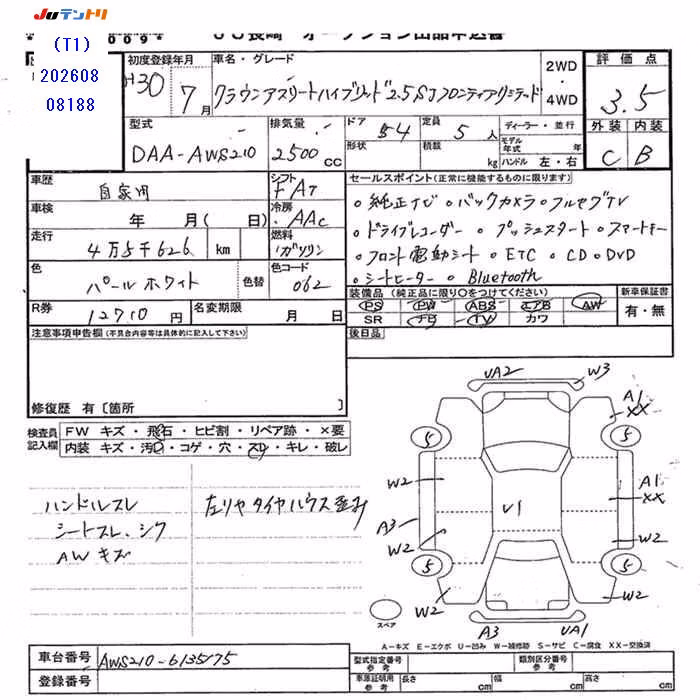 JUテントリ
(T1)
202608
08188
009*
JU長崎 オークション出品申込書
初度登録年月 車名・グレード 2WD・4WD 評価点
H30 7月 クラウンアスリートハイブリッド2.5SJフロンティアリミテッド 3.5
型式 排気量 ドア 定員 ディーラー・並行 外装 内装
DAA-AWS210 2500cc 54 5人 C B
形状 積載 kg モデル年式 年
ハンドル 左・右
車歴 シフト セールスポイント(正常に機能するものに限ります)
自家用 FAT
車検 年 月( 日) 冷房 AAC
走行 4万5千626 km 燃料 ガソリン
色 パールホワイト 色替 色コード 062
R券 12710円 名変期限 月 日
。純正ナビ 。バックカメラ 。フルセグTV
。ドライブレコーダー 。プッシュスタート 。スマートキー
。フロント電動シート 。ETC 。CD 。DVD
。シートヒーター 。Bluetooth
装備品(純正品に限り○をつけてください) 新車保証書
PS PW ABS エアB AW 有・無
SR TV カワ
注意事項申告欄(不具合内容等は具体的に記入して下さい) 後日品
修復歴 有〔箇所 〕
検査員記入欄 FW キズ・飛石・ヒビ割・リペア跡・×要
内装 キズ・汚れ・コゲ・穴・スレ・キレ・破レ
ハンドルスレ 左リヤタイヤハウス歪み
シートスレ、シワ
AWキズ
UA2 W3
A1
XX
5 5
W2 A1
XX
U1
A3
W2 W2
5 5
W2 W2
スペア
A3 UA1
A-キズ E-エクボ U-凹み W-補修跡 S-サビ C-腐食 XX-交換済
車台番号 AWS210-6135175
登録番号
型式指定番号 参考 類別区分番号 参考
車庫証明用 参考 長さ cm 幅 cm 高さ cm